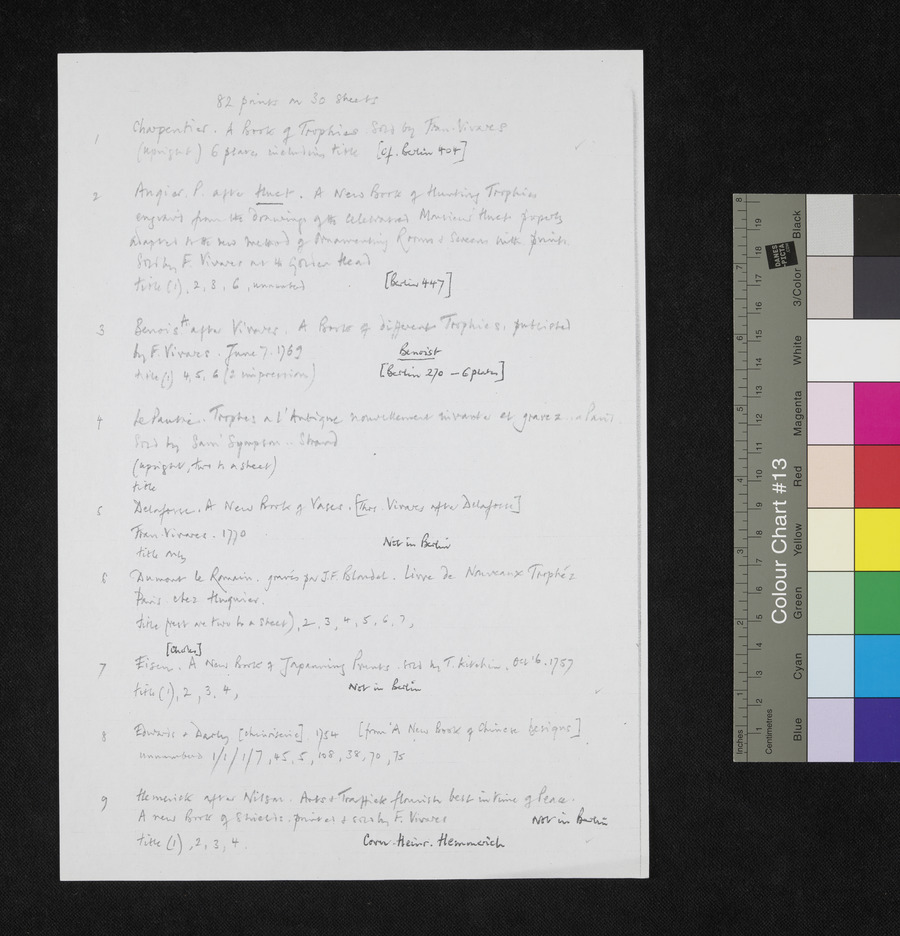 82 prints on 30 sheets
1 Charpentier. A Book of Trophies. Sold by Fran. Vivares
(upright) 6 plates including title [cf. Berlin 404]
2 Angier. P. after Huet. A New Book of Hunting Trophies
engraved from the Drawings of the celebrated Monsieur Huet properly
adapted to the new method of Ornamenting Rooms & Screens with prints
Sold by F. Vivares at the Golden Head
title (1), 2, 3, 6, unnumbered [Berlin 447]
3 Benoist after Vivares. A Book of different Trophies. published
by F. Vivares. June 7. 1769 Benoist
title (1) 4, 5, 6 (2 impressions) [Berlin 270 – 6 plates]
4 Le Pautre. Trophes a l'Antique nouvellement et gravez .. a Paris
Sold by Sam Sympson .. Strand
(upright, two to a sheet)
title
5 Delafosse. A New Book of Vases. [Thos. Vivares after Delafosse]
Fran Vivares. 1770 Not in Berlin
title only
6 Dumont le Romain. gravés par J.F. Blondel. Livre de Nouveaux Trophéz
Paris chez Huquier.
title (rest are two to a sheet), 2, 3, 4, 5, 6, 7,
[Charles]
7 Eisen. A New Book of Japanning Prints. sold by T. Kitchin. Oct 6. 1757
title (1), 2, 3, 4, Not in Berlin
8 Edwards & Darly [chinoiserie] 1754 [from A New Book of Chinese Designs]
unnumbered 1/1/1/7, 45, 5, 108, 38, 70, 75
9 Hemerick after Nilson. Arts & Traffick flourish best in time of Peace.
A new Book of Shields. printed & sold by F. Vivares Not in Berlin
title (1), 2, 3, 4. Corn. Heinr. Hemmerich
Inches
1 2 3 4 5 6 7 8
Centimetres
1 2 3 4 5 6 7 8 9 10 11 12 13 14 15 16 17 18 19
Colour Chart #13
DANES
PICTA
.COM
Blue Cyan Green Yellow Red Magenta White 3/Color Black